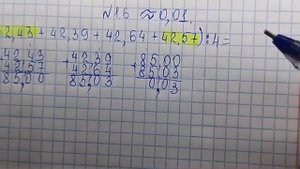 № 8.6 ≈ 0,01
2,43 + 42,39 + 42,64 + 42,57) : 4 =
42,43 42,39 85,00
+ 42,57 + 42,64 + 85,03
85,00 85,03 0,03